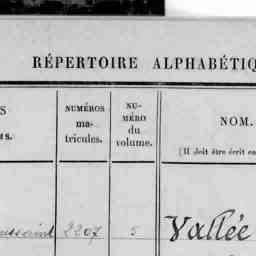 RÉPERTOIRE ALPHABÉTIQ
S
us.
NUMÉROS
ma-
tricules.
NU-
MÉRO
du
volume.
NOM.
(Il doit être écrit en
2207
5
Vallée